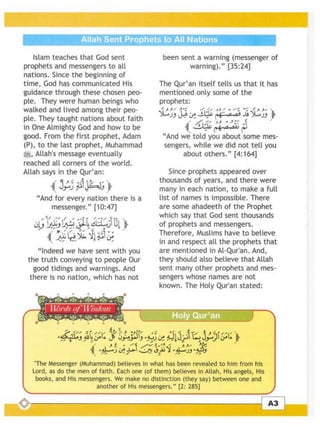 Allah Sent Prophets to All Nations
Islam teaches that God sent
prophets and messengers to all
nations. Since the beginning of
time, God has communicated His
guidance through these chosen peo-
ple. They were human beings who
walked and lived among their peo-
ple. They taught nations about faith
in One Almighty God and how to be
good. From the first prophet, Adam
(P), to the last prophet, Muhammad
ﷺ, Allah's message eventually
reached all corners of the world.
Allah says in the Qur'an:
"And for every nation there is a
messenger." [10:47]
"Indeed we have sent with you
the truth conveying to people Our
good tidings and warnings. And
there is no nation, which has not
been sent a warning (messenger of
warning)." [35:24]
The Qur'an itself tells us that it has
mentioned only some of the
prophets:
"And we told you about some mes-
sengers, while we did not tell you
about others." [4:164]
Since prophets appeared over
thousands of years, and there were
many in each nation, to make a full
list of names is impossible. There
are some ahadeeth of the Prophet
which say that God sent thousands
of prophets and messengers.
Therefore, Muslims have to believe
in and respect all the prophets that
are mentioned in Al-Qur'an. And,
they should also believe that Allah
sent many other prophets and mes-
sengers whose names are not
known. The Holy Qur'an stated:
Words of Wisdom
Holy Qur'an
"The Messenger (Muhammad) believes in what has been revealed to him from his
Lord, as do the men of faith. Each one (of them) believes in Allah, His angels, His
books, and His messengers. We make no distinction (they say) between one and
another of His messengers." [2: 285]
A3